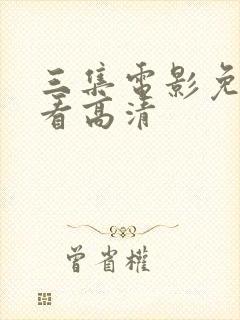 三集电影免
看高清
曾省權